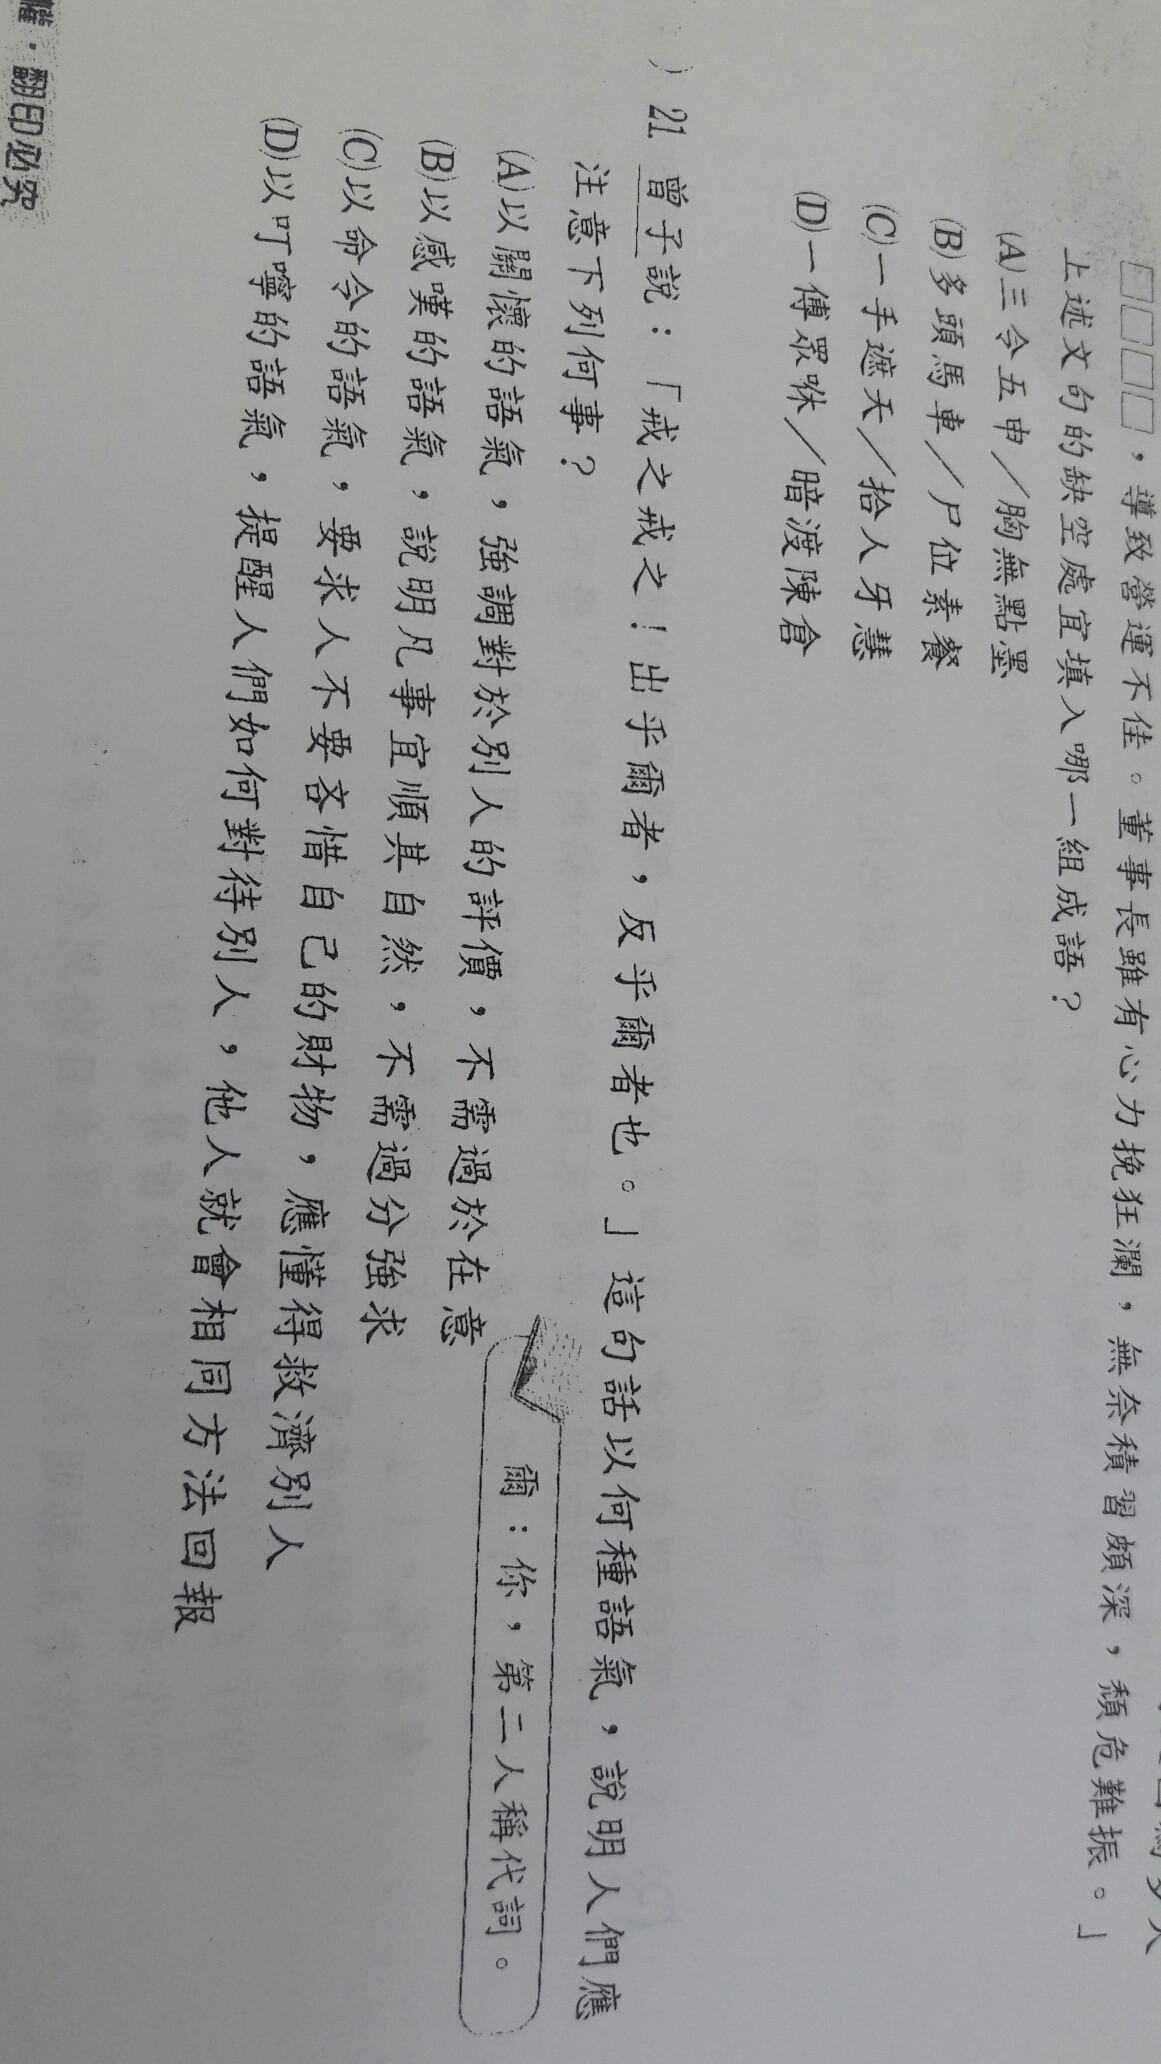 □□□□，導致營運不佳。董事長雖有心力挽狂瀾，無奈積習頗深，頹危難振。」
上述文句的缺空處宜填入哪一組成語？
(A)三令五申／胸無點墨
(B)多頭馬車／尸位素餐
(C)一手遮天／拾人牙慧
(D)一傅眾咻／暗渡陳倉
) 21 曾子說：「戒之戒之！出乎爾者，反乎爾者也。」這句話以何種語氣，說明人們應
注意下列何事？
爾：你，第二人稱代詞。
(A)以關懷的語氣，強調對於別人的評價，不需過於在意
(B)以感嘆的語氣，說明凡事宜順其自然，不需過分強求
(C)以命令的語氣，要求人不要吝惜自己的財物，應懂得救濟別人
(D)以叮嚀的語氣，提醒人們如何對待別人，他人就會相同方法回報
權．翻印必究